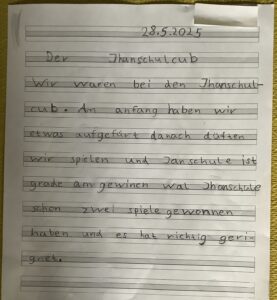 28.5.2025
Der Jhanschulcub
Wir waren bei den Jhanschul-
cub. An anfang haben wir
etwas aufgefürt danach düften
wir spielen und Janschule ist
grade am gewinen wal Jhanschule
schon zwei spiele gewonnen
haben und es hat richtig geri-
gnet.